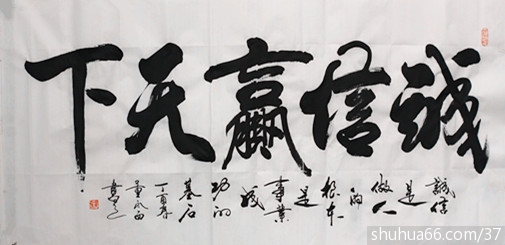 誠信赢天下
誠信
是
做人
的
根本
是
事業
成
功的
基石
丁酉年
shuhua66.com/37